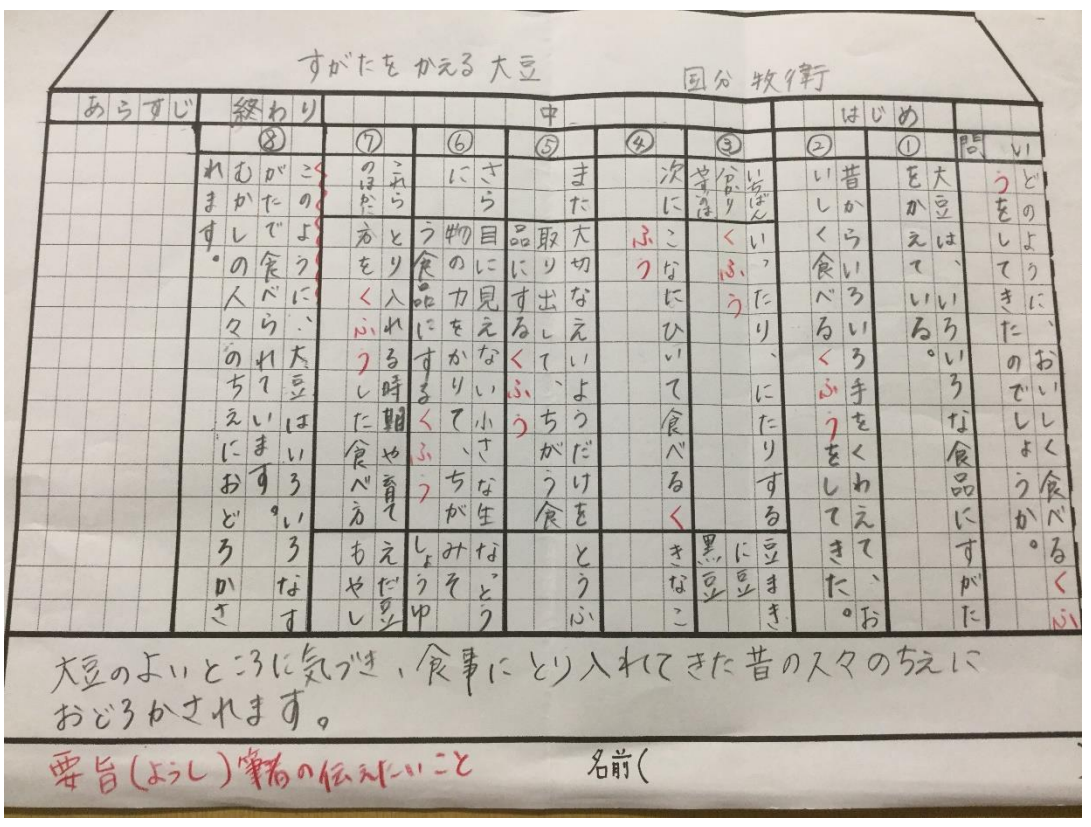 すがたをかえる大豆
国分 牧衛
はじめ
中
終わり
あらすじ
問い
どのように、おいしく食べるくふ
うをしてきたのでしょうか。
①
大豆は、いろいろな食品にすがた
をかえている。
②
昔からいろいろ手をくわえて、お
いしく食べるくふうをしてきた。
③
いちばん
分かり
やすのは
いったり、にたりする
くふう
豆まき
に豆
黒豆
④
次に
こなにひいて食べるく
ふう
きなこ
⑤
また
大切なえいようだけを
取り出して、ちがう食
品にするくふう
とうふ
⑥
さら
に
目に見えない小さな生
物の力をかりて、ちが
う食品にするくふう
なっとう
みそ
しょうゆ
⑦
これら
のほかに
とり入れる時期や育て
方をくふうした食べ方
えだ豆
もやし
⑧
このように、大豆はいろいろなす
がたで食べられています。
むかしの人々のちえにおどろかさ
れます。
大豆のよいところに気づき、食事にとり入れてきた昔の人々のちえに
おどろかされます。
要旨(ようし)筆者の伝えたいこと
名前(